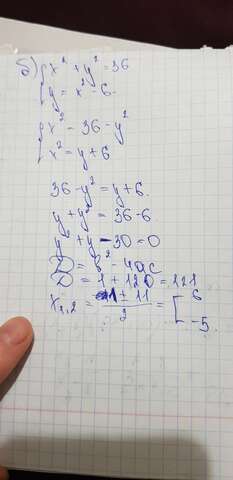 б) { x² + y² = 36
y = x² - 6
{ x² = 36 - y²
x² = y + 6
36 - y² = y + 6
y + y² = 36 - 6
y² + y - 30 = 0
D = b² - 4ac
D = 1 + 120 = 121
x₁,₂ = 1 ± 11 / 2 = [ 6
-5